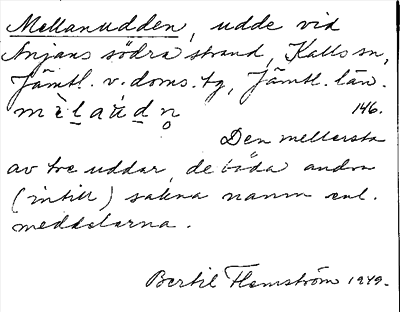 Mellanudden, udde vid
Anjans södra strand, Kalls sn,
Jämtl. v. doms. tg, Jämtl. län.
146.
Den mellersta
av tre uddar, de båda andra
(intill) sakna namn enl.
meddelarna.
Bertil Flemström 1949.